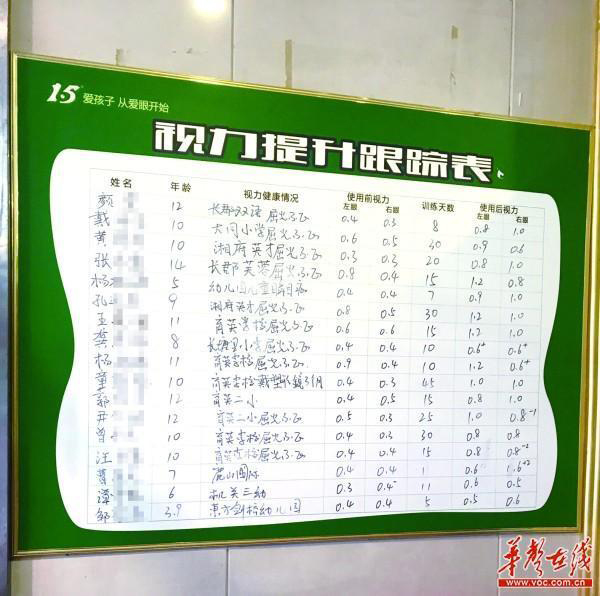 1.5 爱孩子 从爱眼开始
视力提升跟踪表
姓名 年龄 视力健康情况 使用前视力 左眼 右眼 训练天数 使用后视力 左眼 右眼
颜 12 长郡双语 屈光不正 0.4 0.3 8 0.8 1.0
戴 10 大同小学屈光不正 0.6 0.5 30 0.9 0.6
黄 10 湘府英才屈光不正 0.3 0.3 20 0.8 1.0
张 14 长郡芙蓉屈光不正 0.8 0.4 15 1.2 0.8
杨 5 幼儿园儿童 0.4 0.4 7 0.9 1.0
孔 9 湘府英才屈光不正 0.8 0.5 30 1.2 1.0
王 11 育英学校屈光不正 0.6 0.6 15 1.2 1.0
龚 8 长塘里小学屈光不正 0.4 0.4 10 0.6+ 0.6+
杨 11 育英学校屈光不正 0.9 0.4 10 1.2 0.6+
童 10 育英学校戴塑形镜 0.4 0.3 45 1.0 1.0
郭 12 育英二小 0.4 0.5 15 0.8 1.0
尹 12 育英二小屈光不正 0.5 0.3 25 1.0 0.8-1
曾 10 育英学校屈光不正 0.4 0.3 30 0.8 0.8
汪 10 育英学校屈光不正 0.4 0.4 15 0.8 0.8-2
曹 7 麓山国际 0.4 0.4 1 0.6
谭 6 机关三幼 0.3 0.4- 11 0.6 0.5
邹 3.9 东方剑桥幼儿园 0.4 0.4 5 0.5 0.6
华声在线
www.voc.com.cn